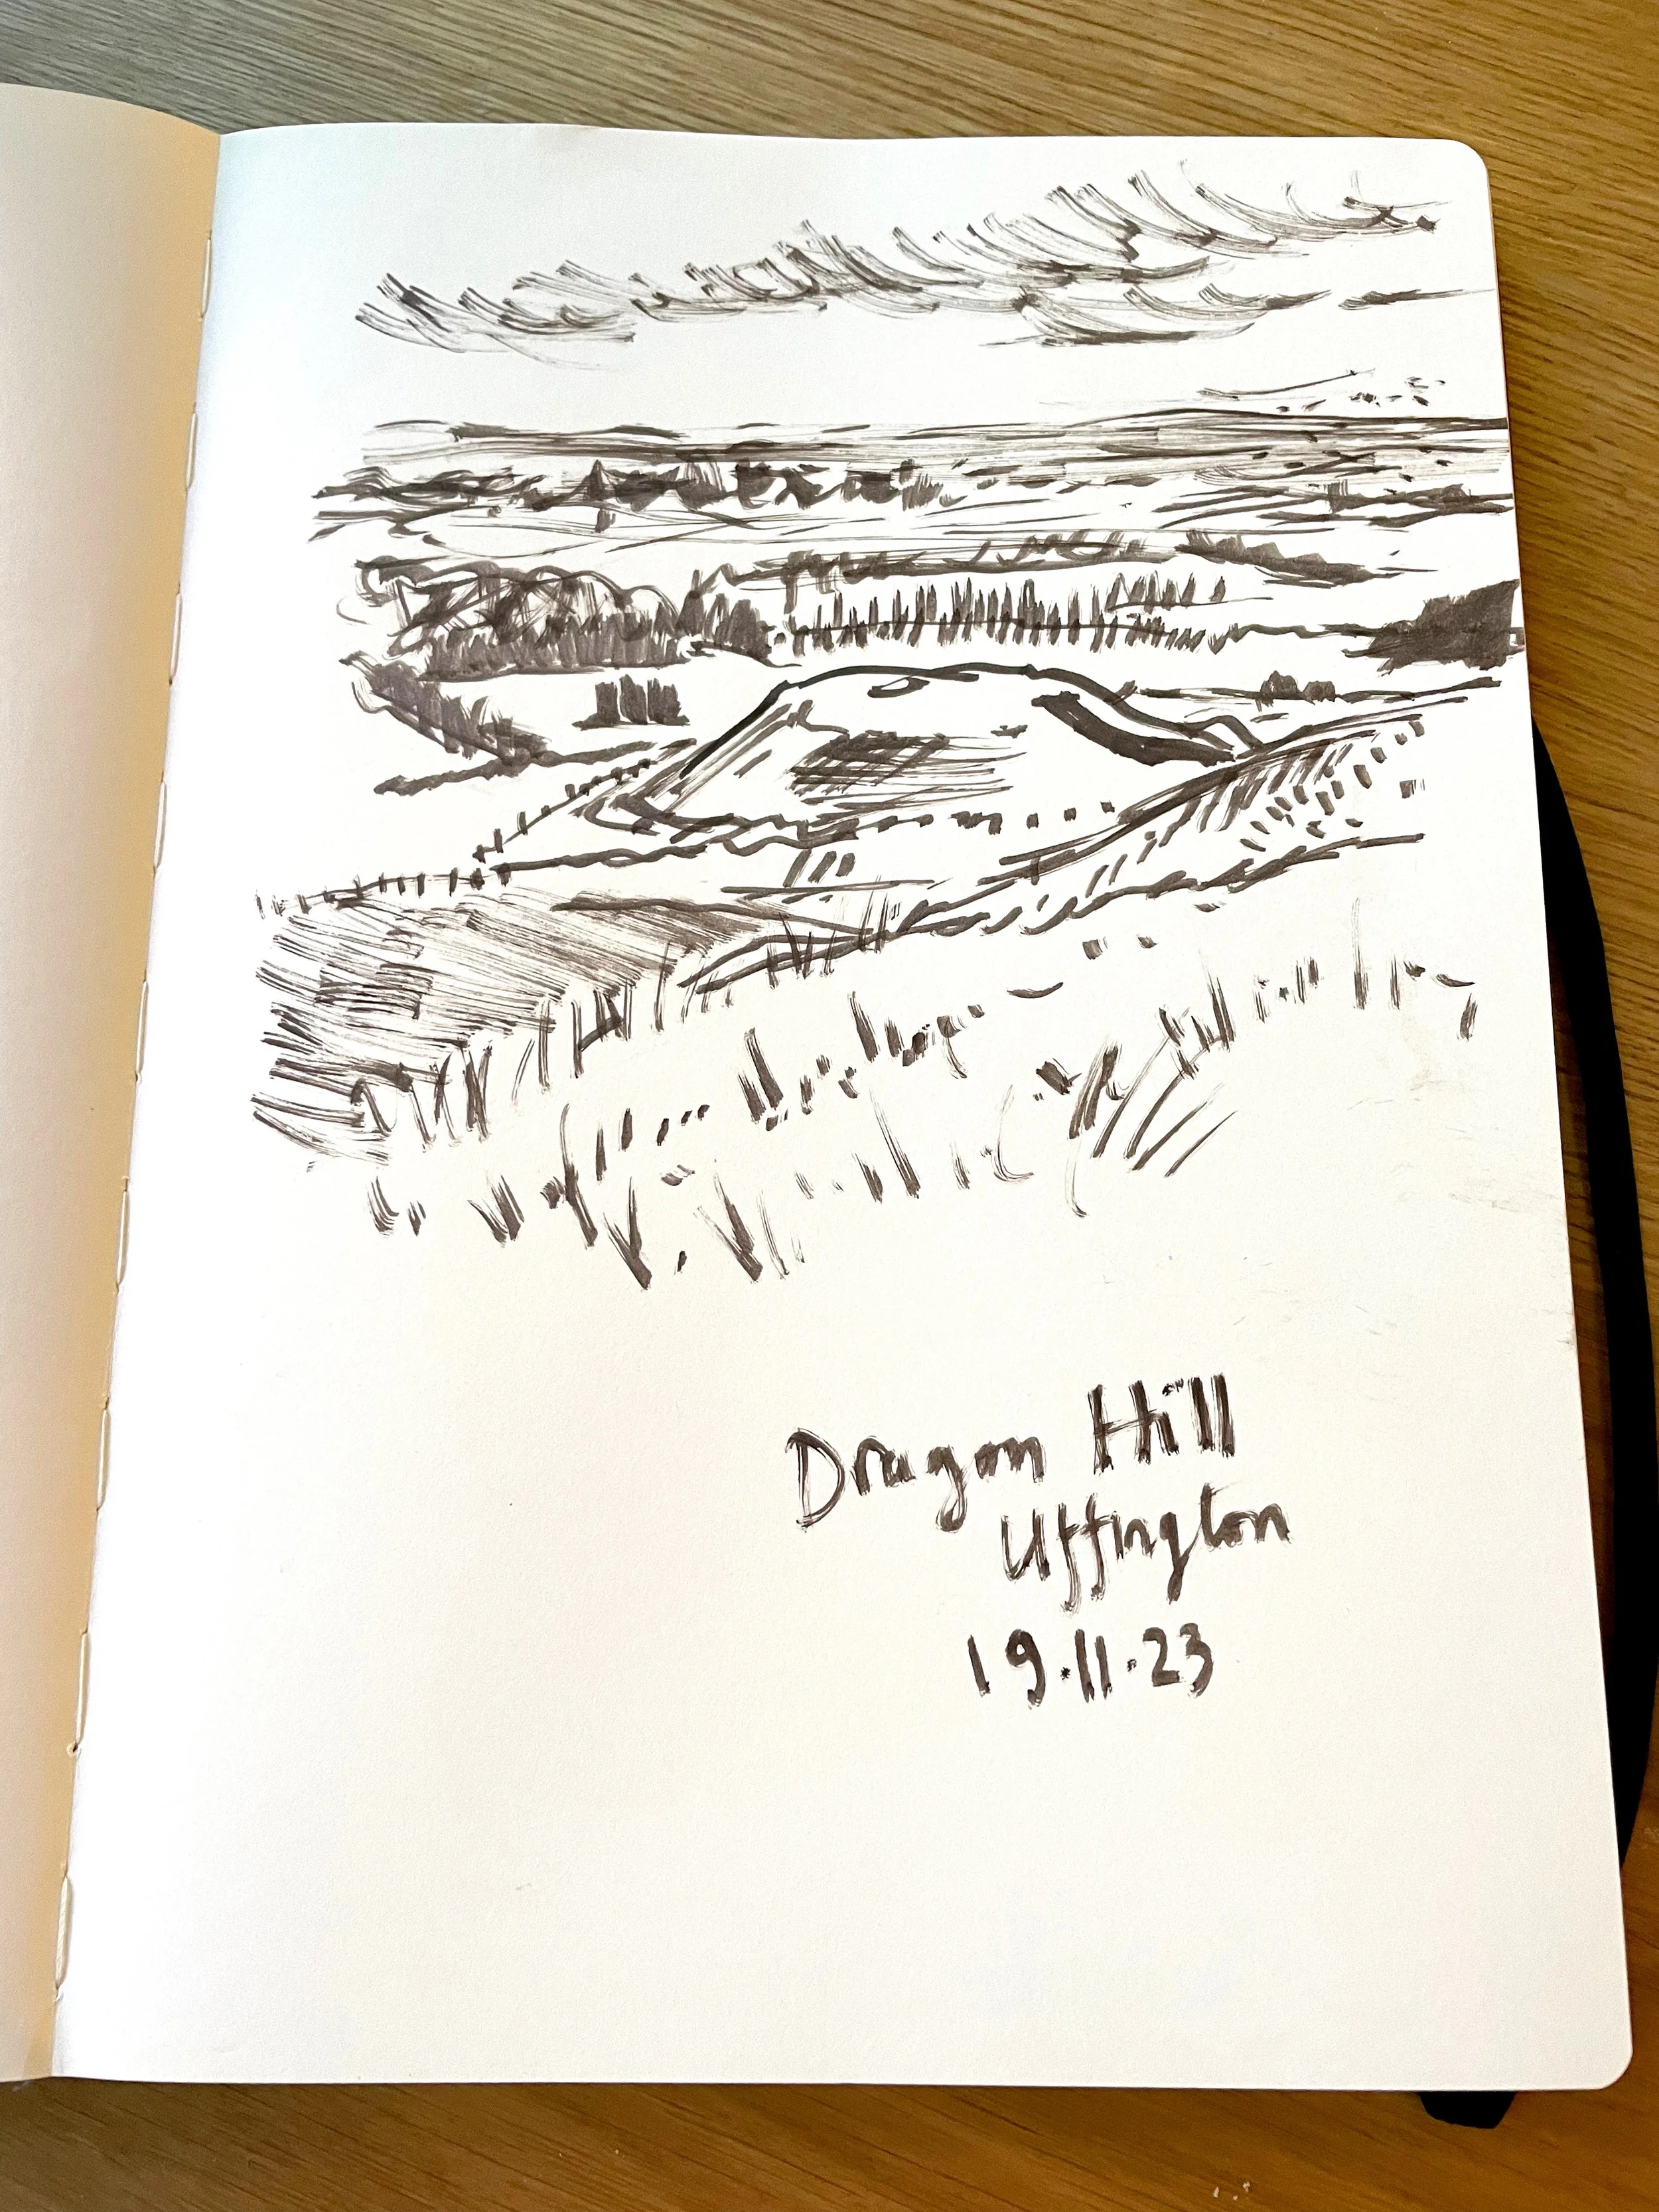 Dragon Hill
Uffington
19.11.23